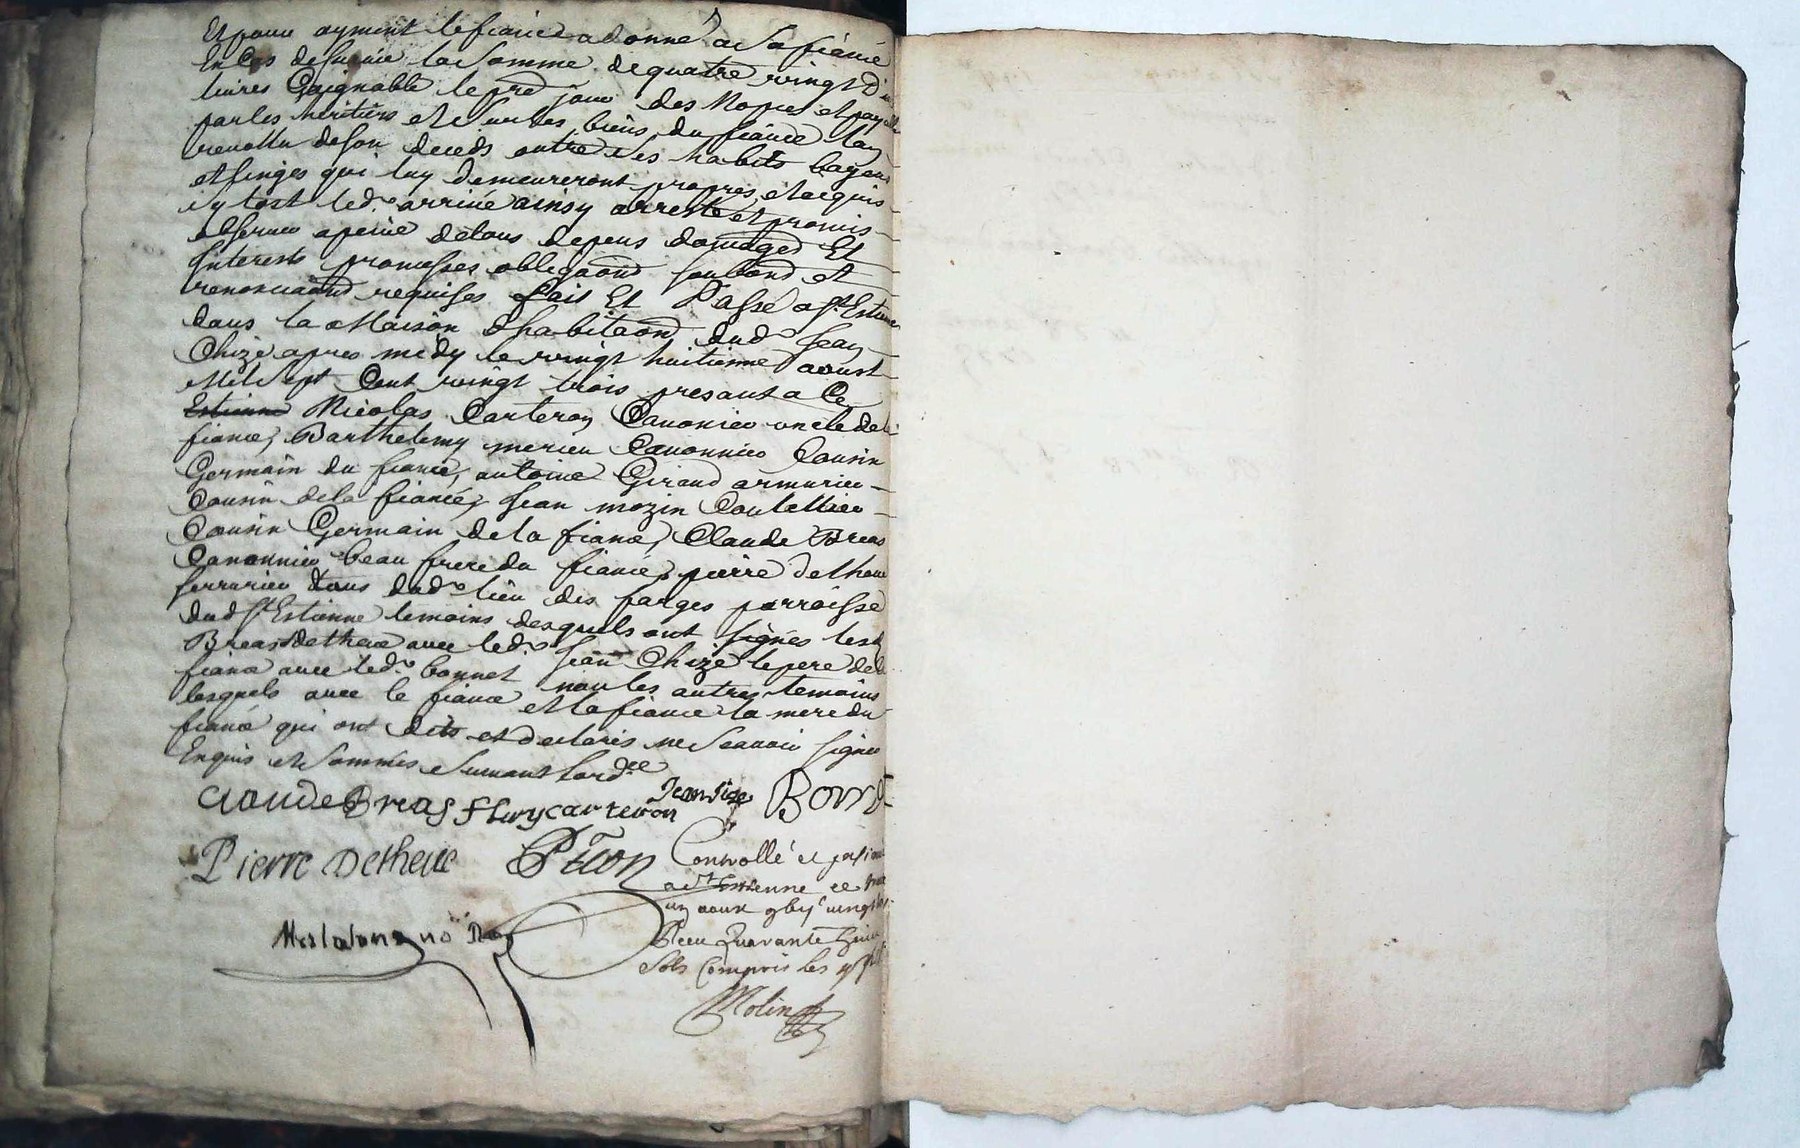 Et pour aymint le fiance a donné a sa fiancée
En Cas de survie la somme de quatre vingt dix
livres Gaignable le pred jour des Nopces et payable
par les heritiers et sur les biens du fiancé lan
revollu de son deceds outre ses habits bagues
et linges qui luy demeureront propres et acquis
sy tost led. arrivé ainsy arresté et promis
observer a peine de tous depens domages Et
Interests promesses obligaons soubons et
renonciaons requises fait Et Passé a St Estienne
dans la Maison dhabitaon dud. Jean
Chize apres midy le vingt huitieme aoust
Mil Sept Cent vingt trois presants a Ce
Estienne Nicolas Carteron Canonier oncle de la
fiancé, Barthelemy merieu Canonnier Cousin
Germain du fiance, antoine Giraud armurier
Cousin de la fiancée, Jean mozin Coutellier
Cousin Germain de la fiancé, Claude Breas
Canonnier beau frere du fiancé, pierre detheue
serrurier tous dud. lieu des farges parroisse
dud St Estienne temoins desquels ont signés lesd
Breas Detheue avec led. Jean Chize le pere de la
fiancé avec led. bonnet non les autres temoins
lesquels avec le fiance et la fiancée la mere du
fiancé qui ont dits et declarés ne scavoir signer
Enquis et sommés suivant lord.ce
Claude Breas fleury carteron Jean Size Bonnet
Pierre Detheue Picon Controllé et
a St Estienne ce
un aoust vingt
Receu Quarante
Sols Compris les
Molin